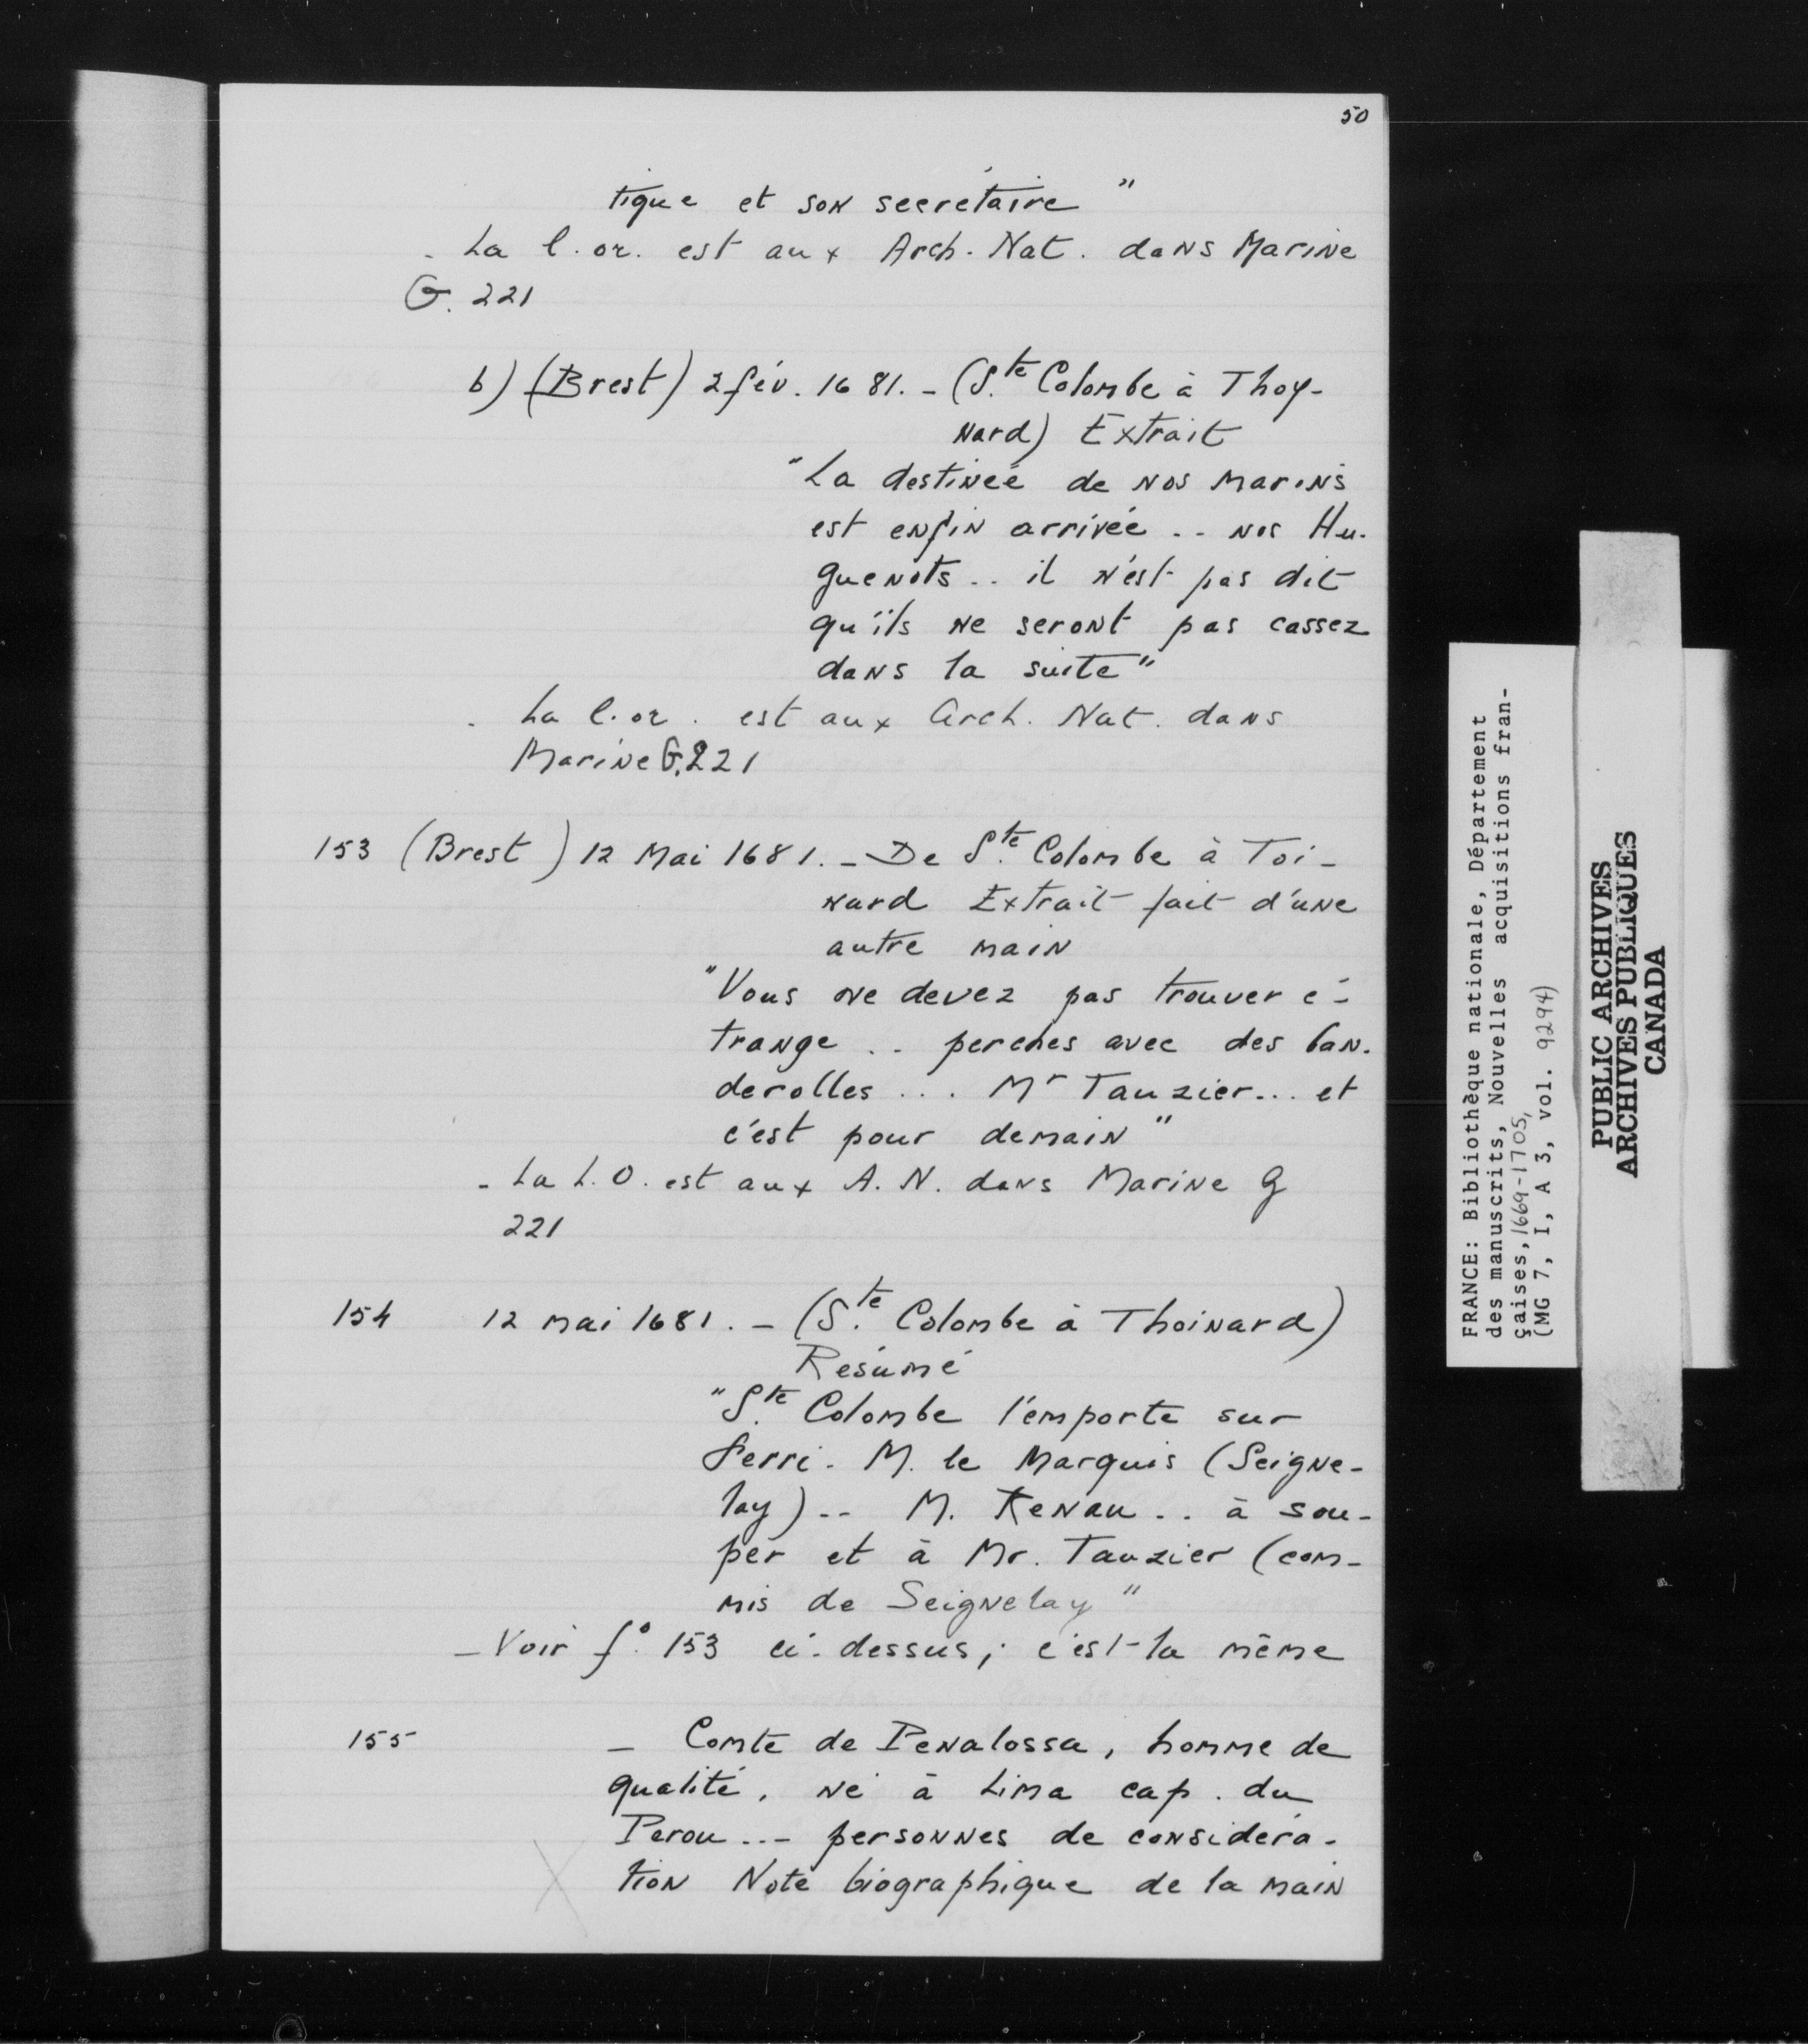 50
tique et son secrétaire"
- La l. or. est aux Arch. Nat. dans Marine
G. 221
b) (Brest) 2 fév. 1681. - (Ste Colombe à Thoy-
nard) Extrait
"La destinée de nos marins
est enfin arrivée .. nos Hu-
guenots .. il n'est pas dit
qu'ils ne seront pas cassez
dans la suite"
- La l. or. est aux Arch. Nat. dans
Marine G. 221
153 (Brest) 12 Mai 1681. - De Ste Colombe à Toi-
nard Extrait fait d'une
autre main
"Vous ne devez pas trouver é-
trange .. perches avec des ban-
derolles ... Mr Tauzier... et
c'est pour demain"
- La L. O. est aux A. N. dans Marine G
221
154 12 mai 1681. - (Ste Colombe à Thoinard)
Résumé
"Ste Colombe l'emporte sur
Ferri. M. le Marquis (Seigne-
lay) .. M. Renau .. à sou-
per et à Mr. Tauzier (com-
mis de Seignelay"
- Voir fo 153 ci-dessus; c'est la même
155 - Comte de Penalossa, homme de
qualité, né à Lima cap. du
Perou ... personnes de considéra-
tion Note biographique de la main
FRANCE: Bibliothèque nationale, Département
des manuscrits, Nouvelles acquisitions fran-
çaises, 1669-1705,
(MG 7, I, A 3, vol. 9294)
PUBLIC ARCHIVES
ARCHIVES PUBLIQUES
CANADA